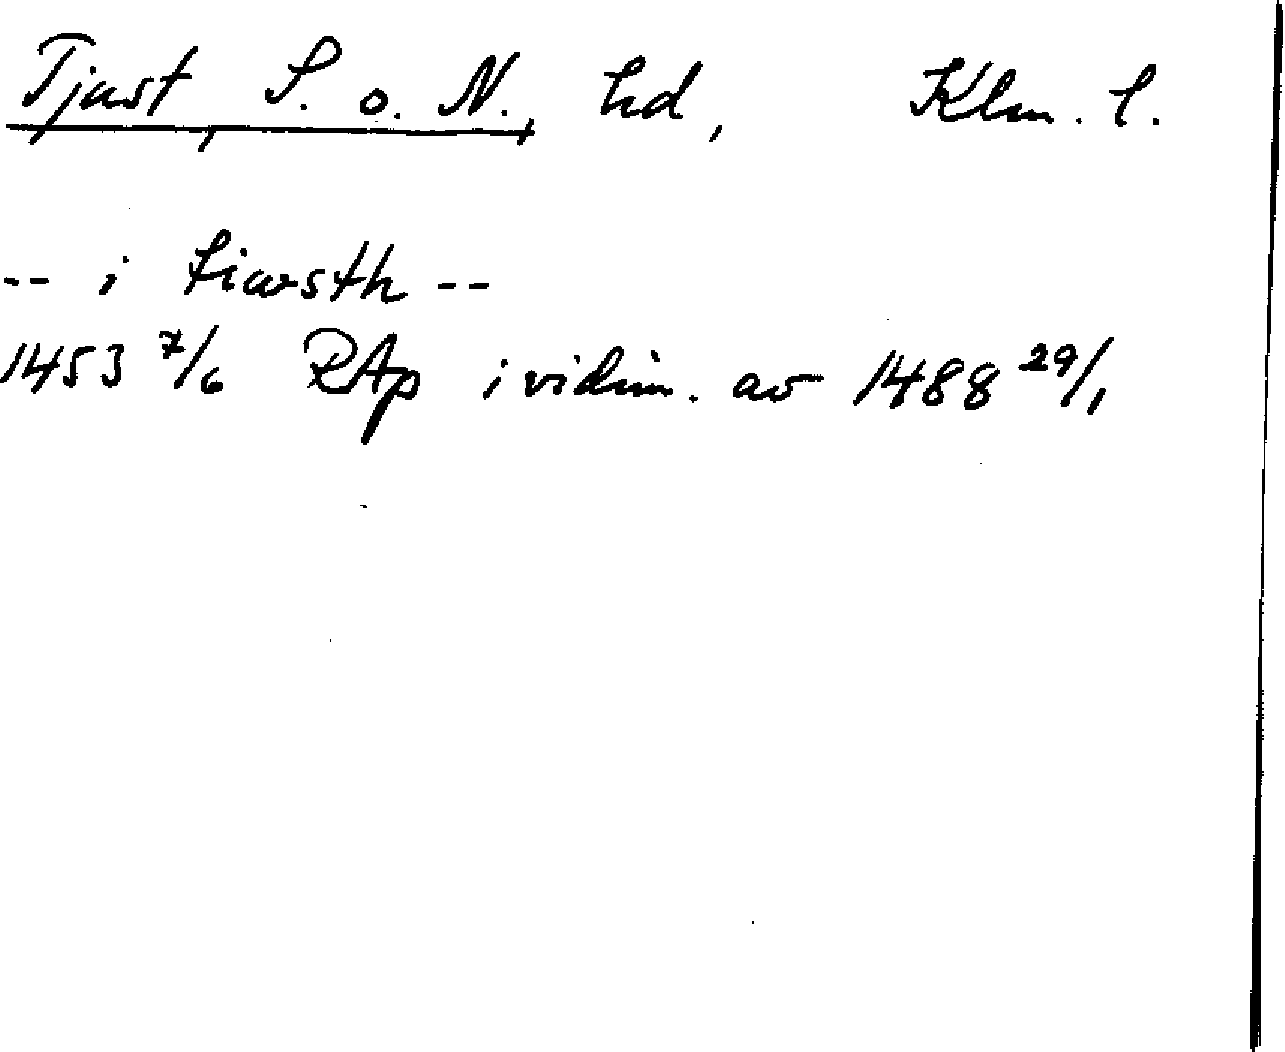 Tjust, S. o. N., hd, Klm. l.
-- i tiwsth --
1453 7/6 RAp i vidim. av 1488 29/1